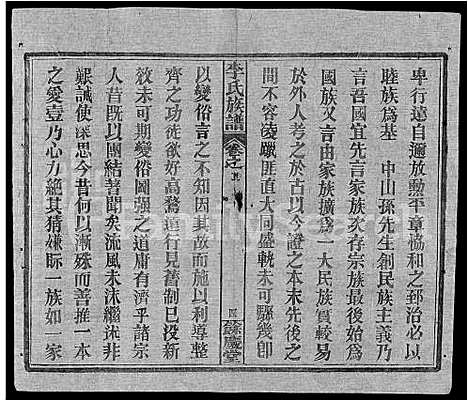 卑行達自邇放勳平章協和之郅治必以
睦族為基　中山孫先生創民族主義乃
言吾國宜先言家族次存宗族最後始為
國族又言由家族擴為一大民族實較易
於外人考之於古以今證之本末先後之
間不容淩躐匪直大同盛軌未可驟幾即
李氏族譜
卷之首
四
餘慶堂
以變俗言之不知因其故而施以利導整
齊之功徒欲好高騖遠行見舊制已沒新
效未可期變俗圖强之道庸有濟乎諸宗
人昔既以團結著聞矣流風未沬繼述非
艱誠使深思今昔何以漸殊而善推一本
之愛壹乃心力絕其猜嫌眎一族如一家